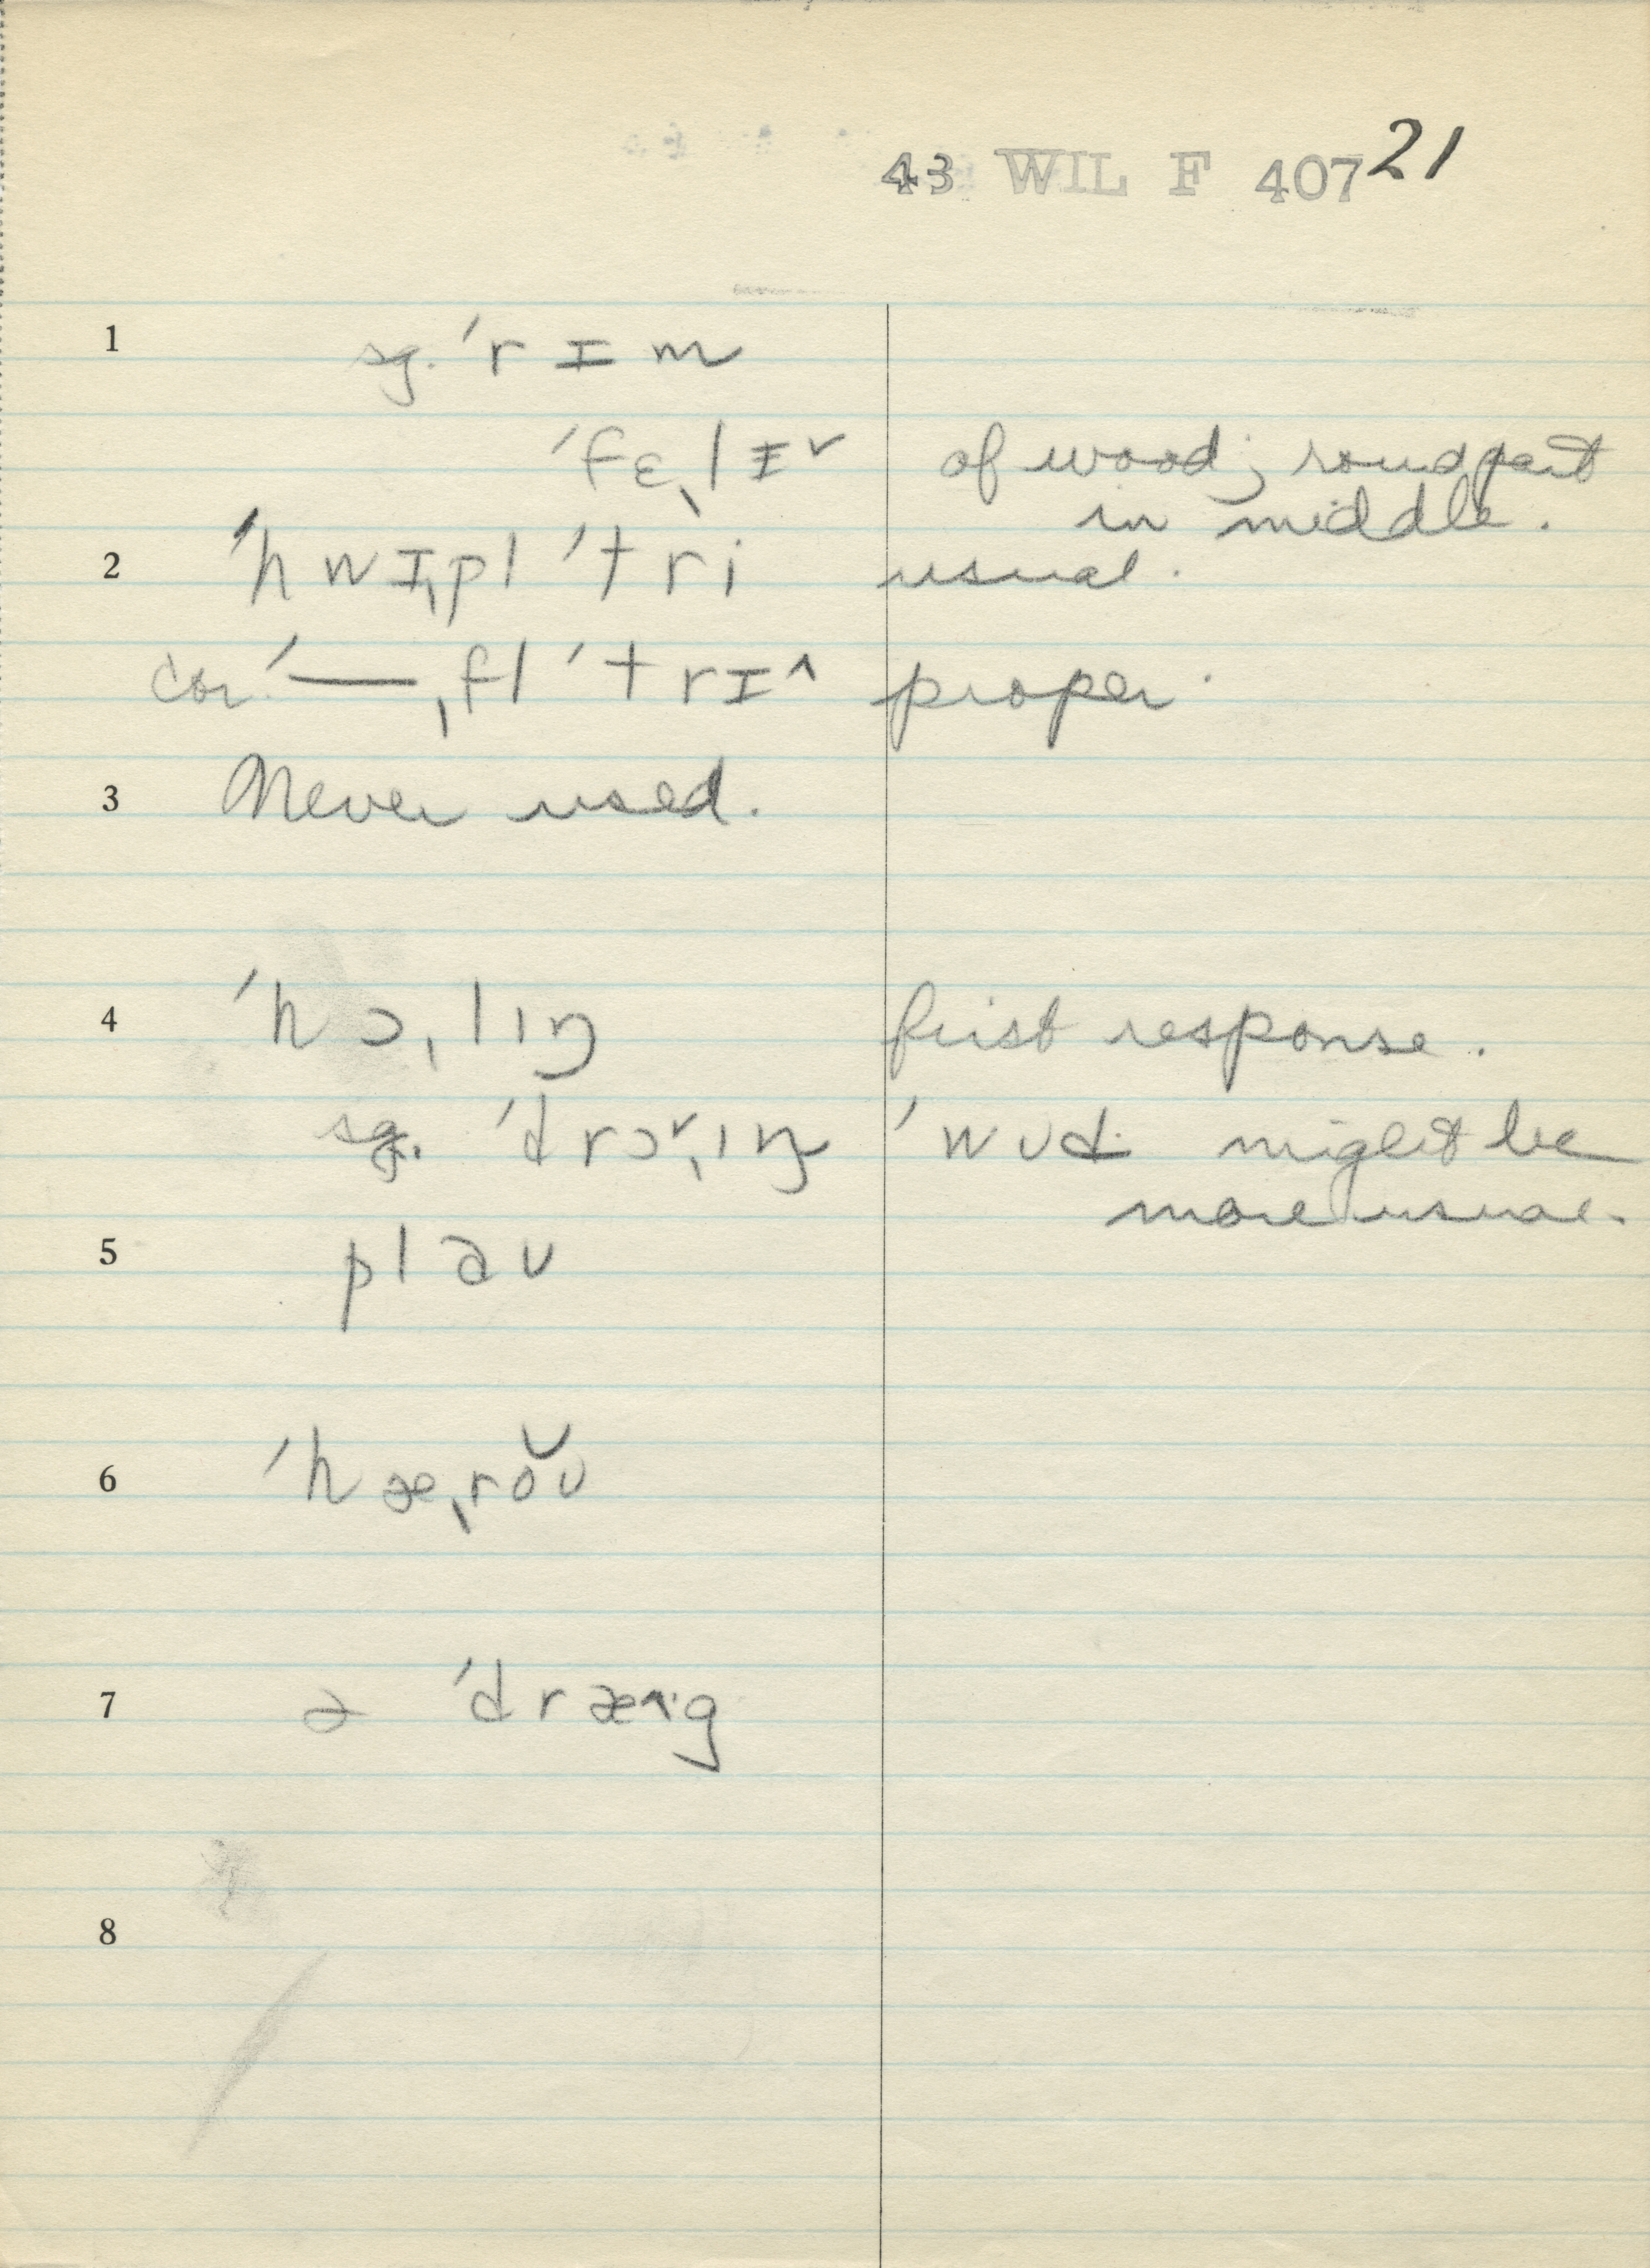 43 WIL F 407 21
1 sg. ˈrɪm
ˈfɛˌlɪ˅ of wood; round part
in middle.
2 ˈhwɪˌpl ˈtri usual.
cor. ˈ—ˌfl ˈtrɪ^ proper.
3 Never used.
4 ˈhɔˌlɪŋ first response.
sg. ˈdrɔ˅ˌɪŋ ˈwʊd might be
more usual.
5 plaʊ
6 ˈhæˌro̯ʊ
7 ə ˈdræ^·g
8